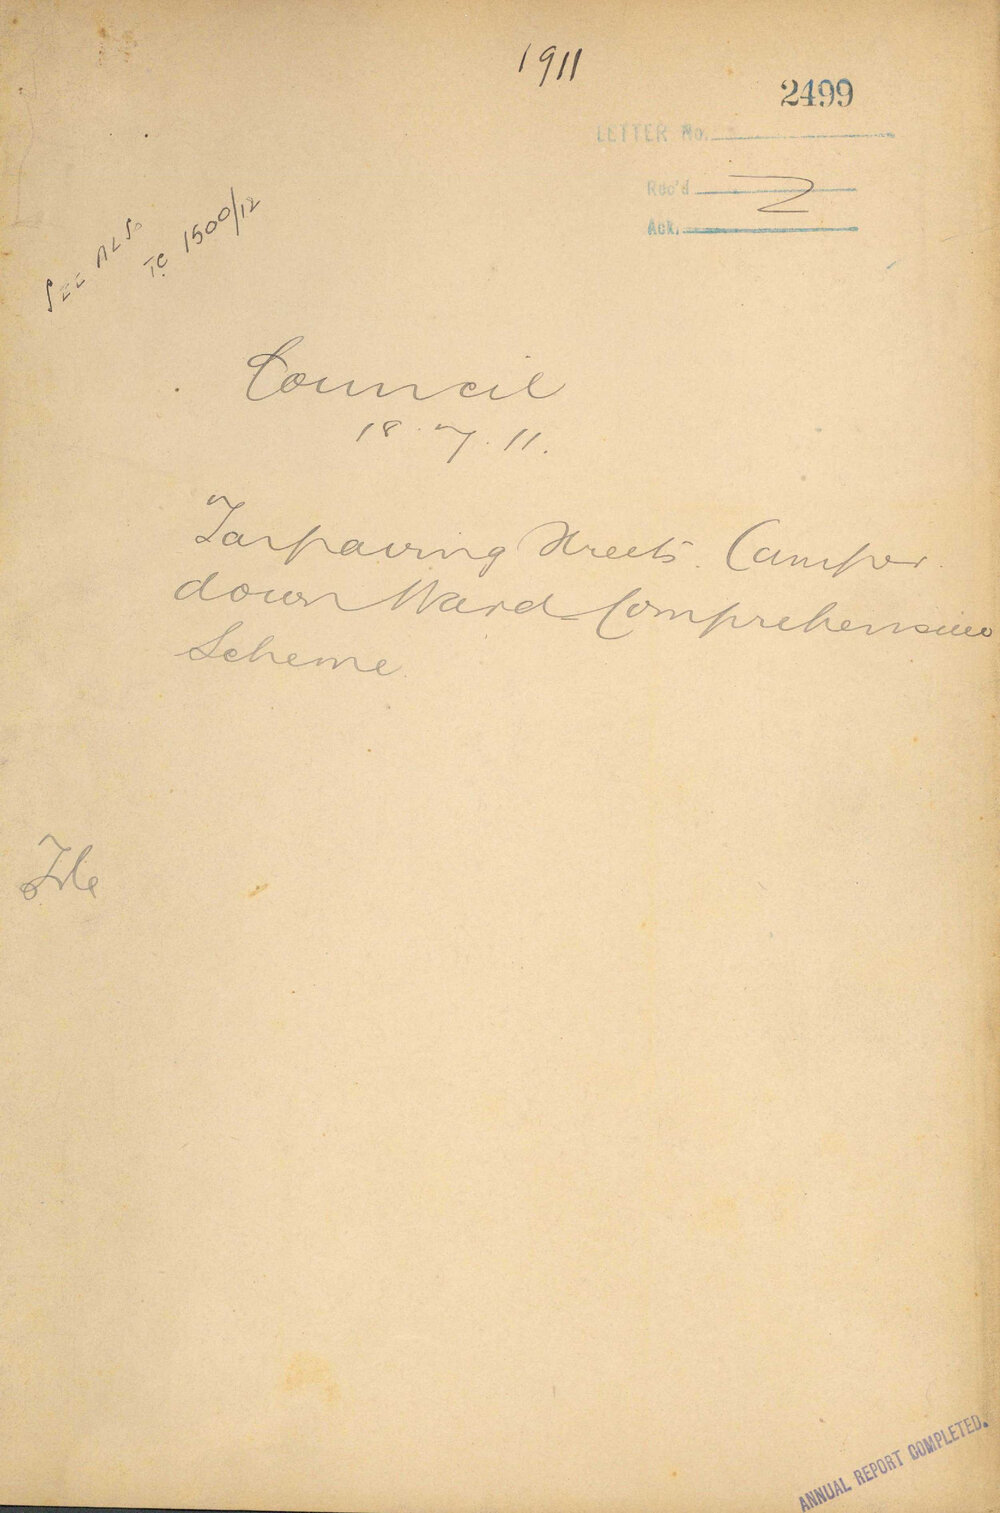 1911
2499
LETTER No.
Rec'd
Ack.
SEE ALSO
TC 1500/12
Council
18.7.11.
Tarpaving Streets. Camper
down Ward Comprehensive
Scheme
File
ANNUAL REPORT COMPLETED.